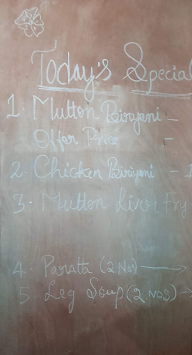 Today's Special
1. Mutton Biryani -
Offer Price -
2. Chicken Biriyani -
3. Mutton Liver Fry
4. Paratta (2 Nos)
5. Leg Soup (2 Nos)